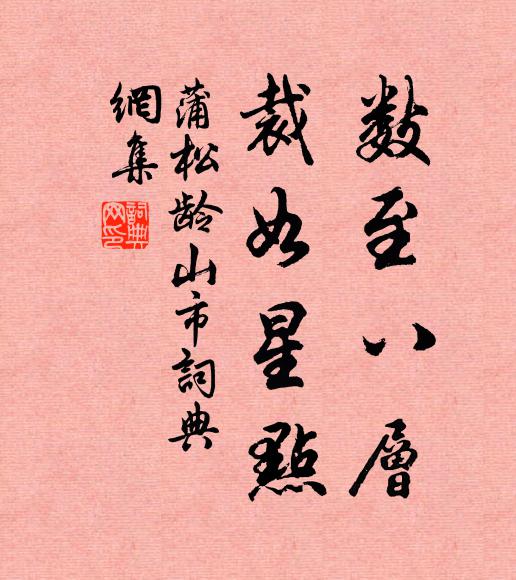 數至八層
裁如星點
蒲松龄山市詞典
網集
詞典
网印